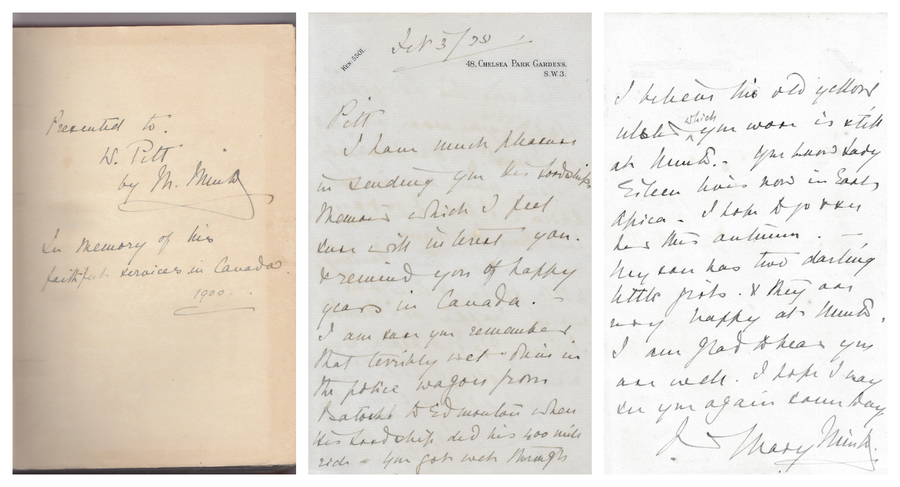 Presented to.
W. Pitt
by M. Minto
In Memory of his
faithful services in Canada.
1900.
Ken. 5501.
48, Chelsea Park Gardens,
S.W.3.
Pitt
I have much pleasure
in sending you His Lordship's
Memoir which I feel
sure will interest you.
& remind you of happy
years in Canada. –
I am sure you remember
that terribly wet drive in
the police wagon from
Batoche to Edmonton when
His Lordship did his 400 mile
ride – you got wet through
I believe his old yellow
which
ulster you wore is still
at Minto. – You know Lady
Eileen lives now in East
Africa – I hope to go & see
her this autumn. –
My son has two darling
little girls. & they are
very happy at Minto.
I am glad to hear you
are well. I hope I may
see you again some day
Mary Minto.